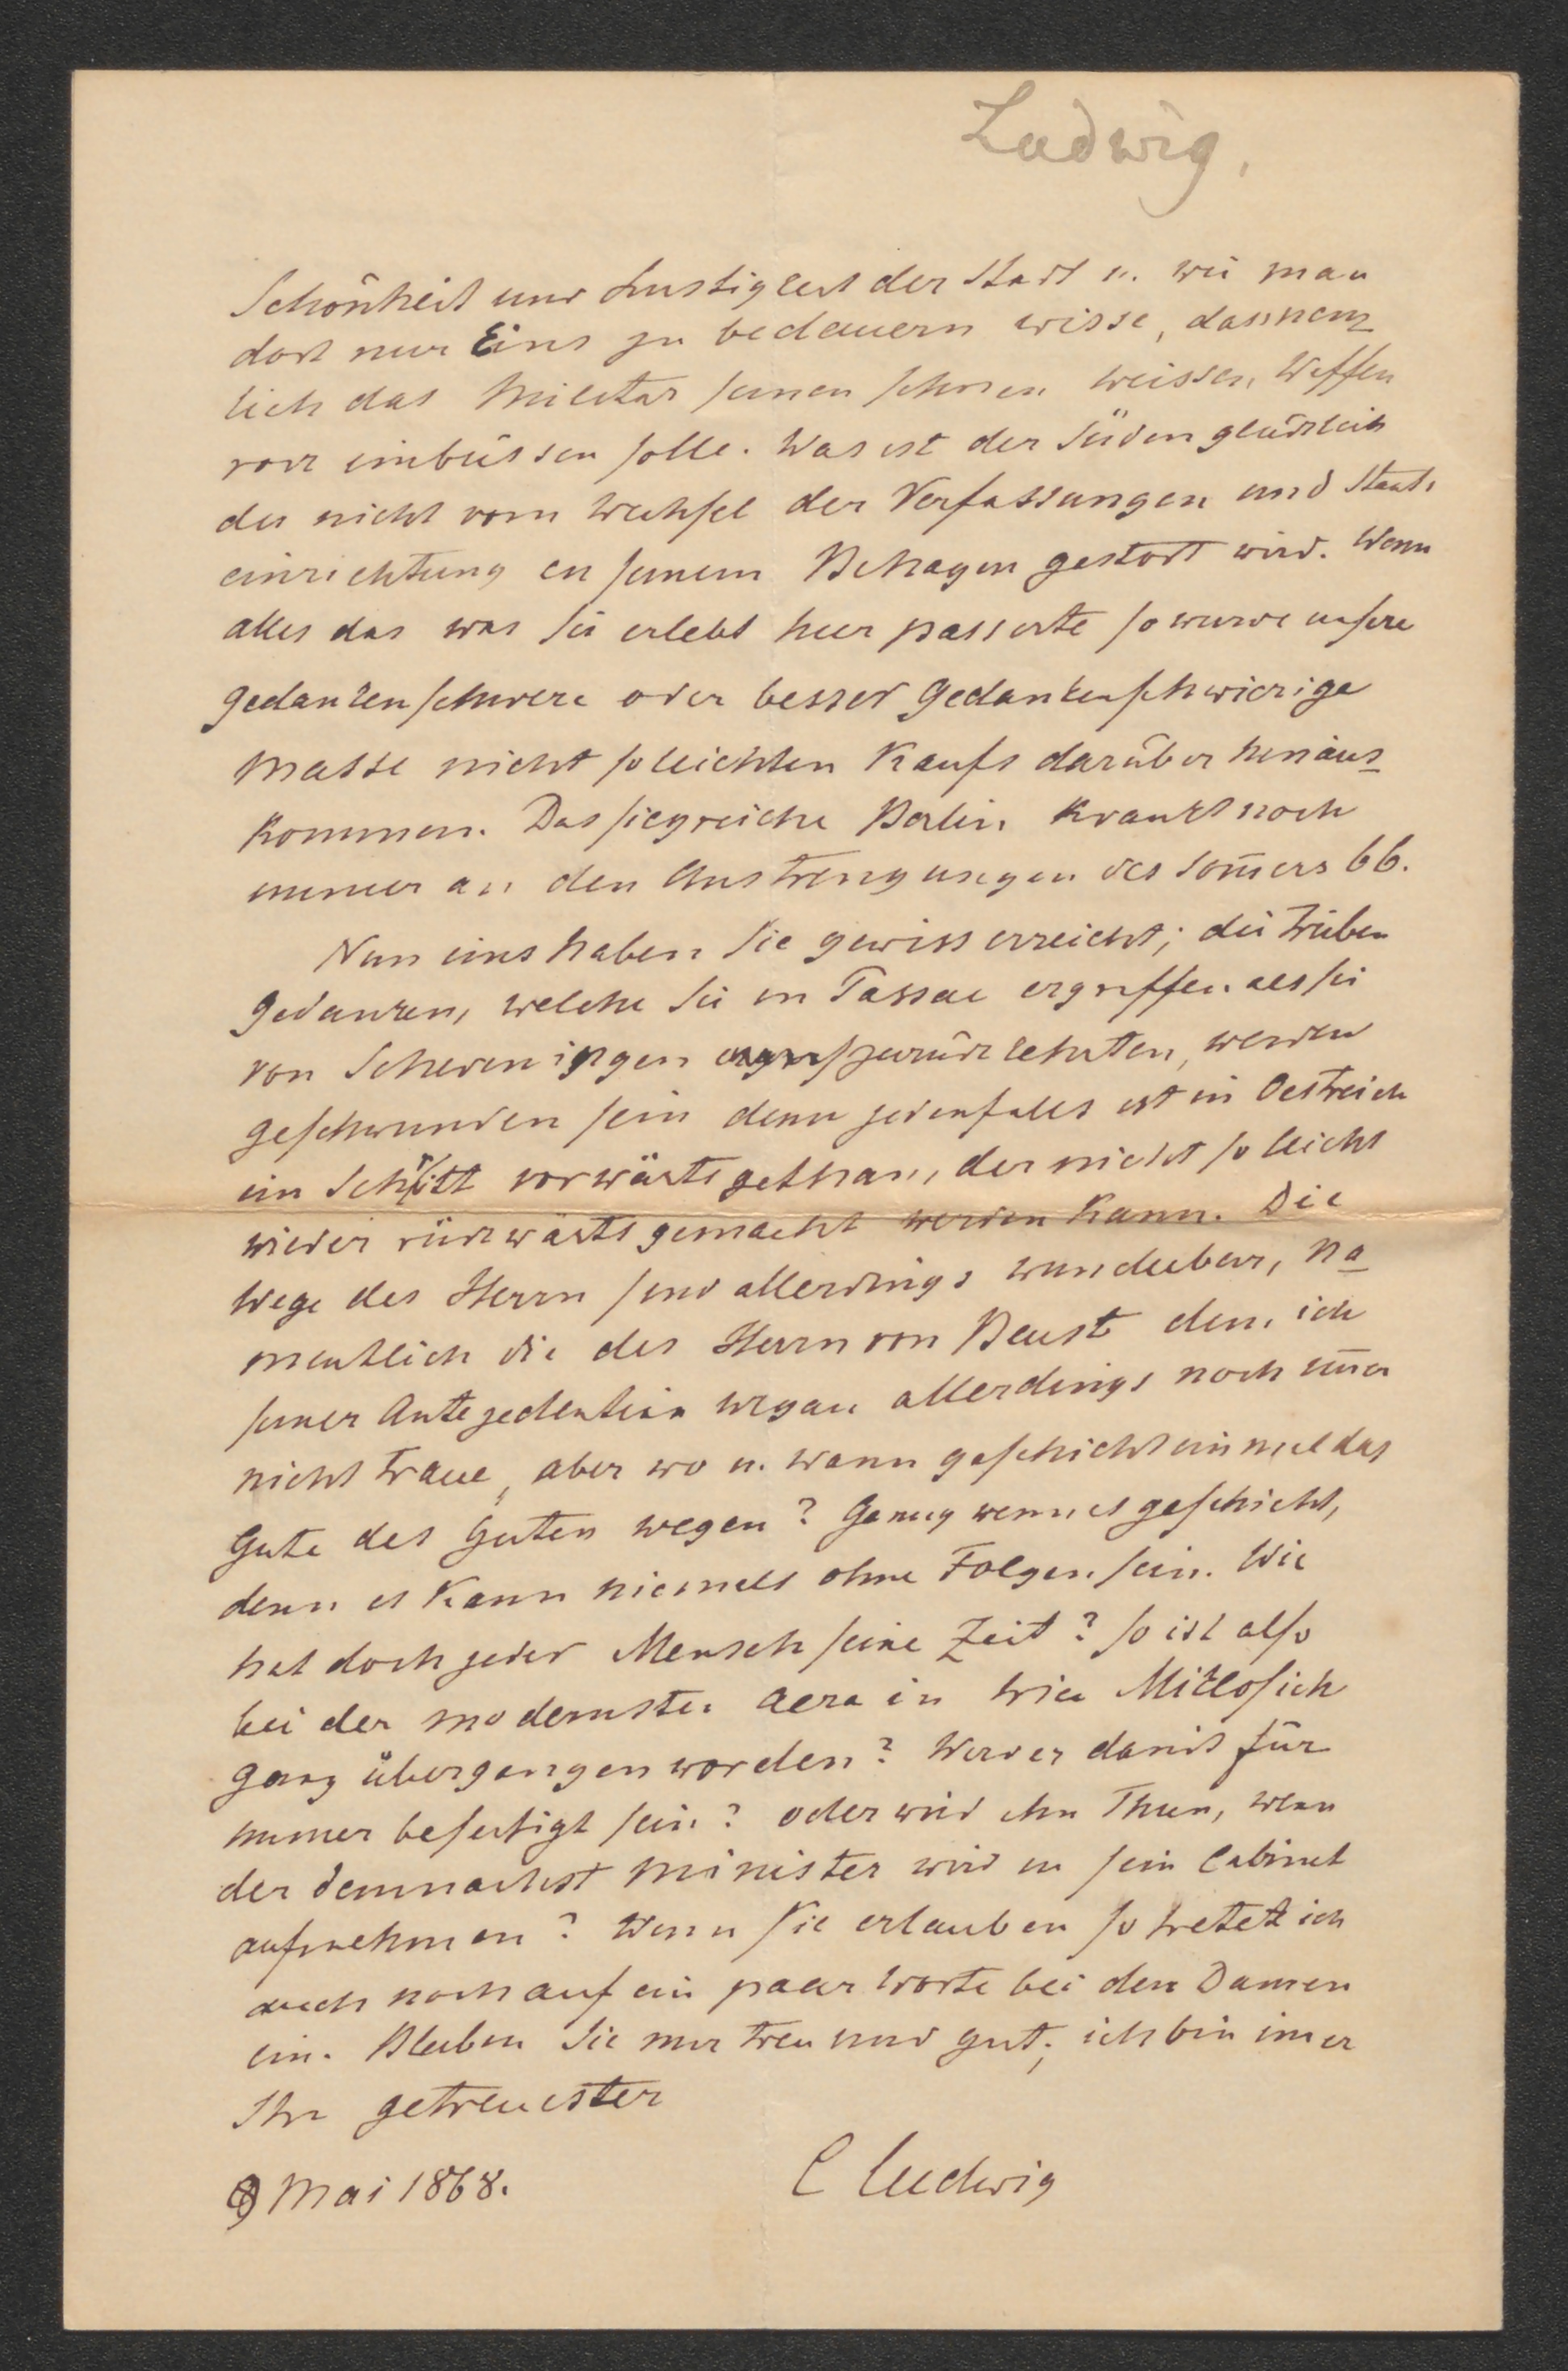 Ludwig.
Schönheit und Lustigkeit der Stadt u. wie man
dort nur Eins zu bedauern wisse, dass nem
lich das Militär seinen schönen weissen Waffen
rock einbüssen solle. Was ist der Süden glücklich
der nicht vom Wechsel der Verfassungen und Staats
einrichtung in seinem Behagen gestört wird. Wenn
alles das was Sie erlebt hier passirte so würde unsere
gedankenschwere oder besser gedankenschwierige
Masse nicht so leichten Kaufs darüber hinaus
kommen. Das siegreiche Berlin krankt noch
immer an den Anstrengungen des Som̅ers 66.
Nun eins haben Sie gewiss erreicht; die trüben
Gedanken, welche Sie in Passau ergriffen als sie
von Scheveningen zurückkehrten, werden
geschwunden sein denn jedenfalls ist in Oestreich
ein Schritt vorwärts gethan, der nicht so leicht
wieder rückwärts gemacht werden kann. Die
Wege des Herrn sind allerdings wunderbar, na
mentlich die des Herrn von Beust dem ich
seiner Antecedentien wegen allerdings noch im̅er
nicht traue, aber wo u. wann geschieht einmal das
Gute des Guten wegen? Genug wenn es geschieht,
denn es kann niemals ohne Folgen sein. Wie
hat doch jeder Mensch seine Zeit? So ist also
bei der modernsten Aera in Wien Miklosich
ganz übergangen worden? Wird er damit für
immer beseitigt sein? oder wird ihn Thun, wenn
der demnächst Minister wird in sein Cabinet
aufnehmen? Wenn Sie erlauben so tretet ich
auch noch auf ein paar Worte bei den Damen
ein. Bleiben Sie mir treu und gut; ich bin im̅er
Ihr getreuester
C Ludwig
9 Mai 1868.